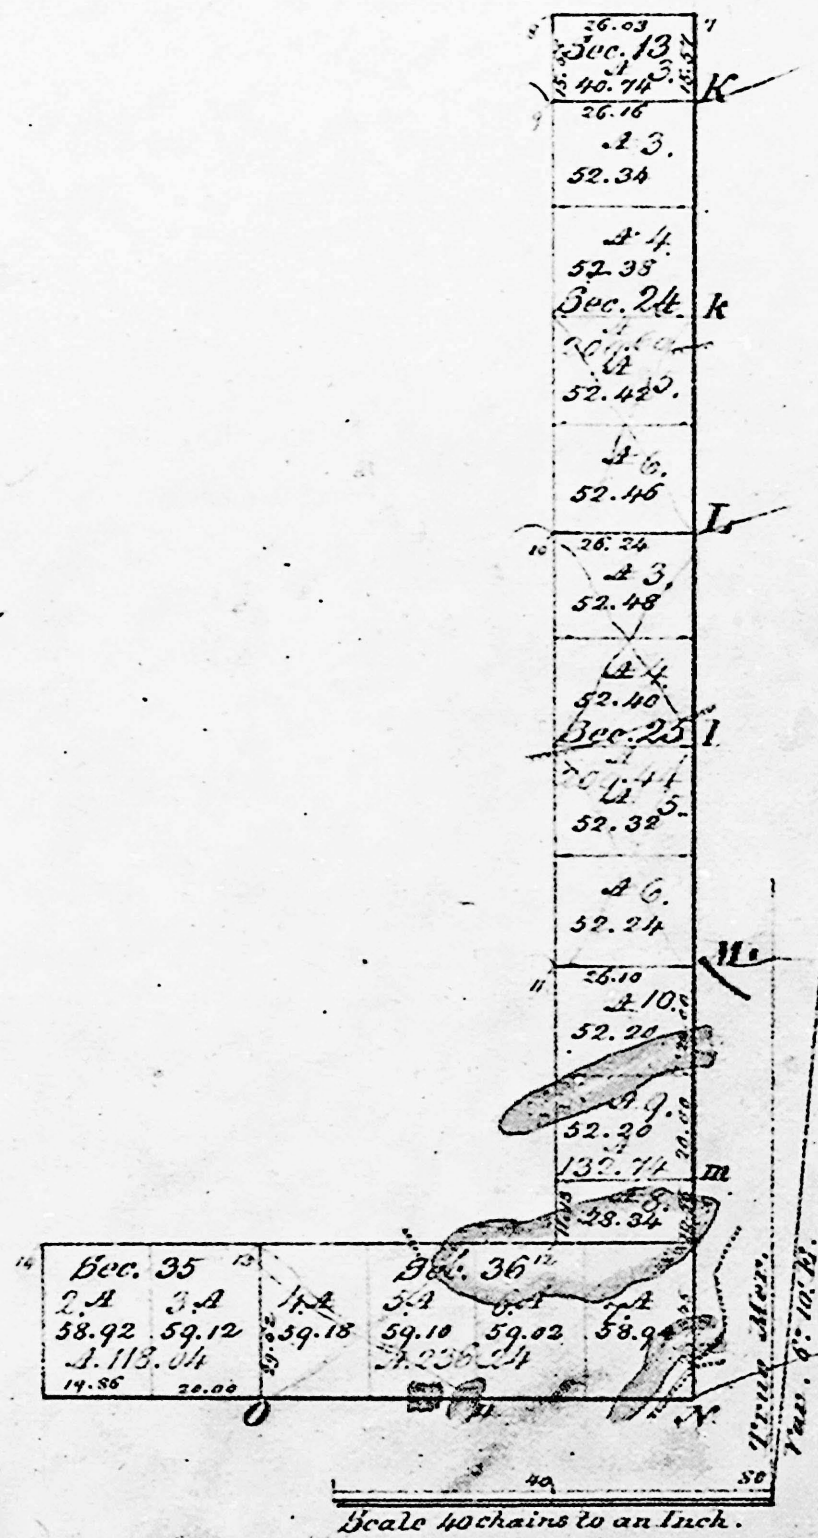 26.03
7
Sec. 13
A 3.
40.74
K
26.16
9
A 3.
52.34
A 4.
52.38
Sec. 24
k
A
A 5.
52.42
A 6.
52.46
L
26.24
10
A 3.
52.48
A 4.
52.40
Sec. 25
l
A
209.44
A 5.
52.32
A 6.
52.24
M.
26.10
11
A 10.
52.20
A 9.
52.20
20.00
A
132.74
m
A 8.
28.34
14
Sec. 35
13
Sec. 36
12
2.A 3.A 4.A 5.A 6.A 7.A
58.92 59.12 59.18 59.10 59.02 58.94
A.118.04
A.236.24
19.86 20.00
O
N
True Mer.
Var. 6°.10'.E.
40 80
Scale 40 chains to an Inch.